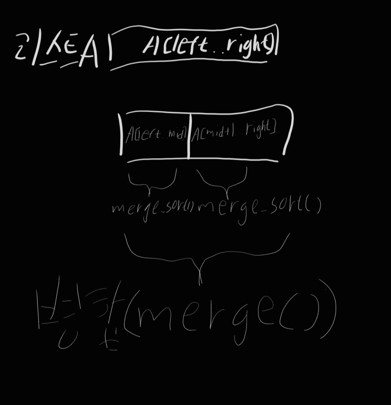 리스트A A[left..right]
A[left mid] A[mid+1 right]
merge_sort() merge_sort()
병합(merge())